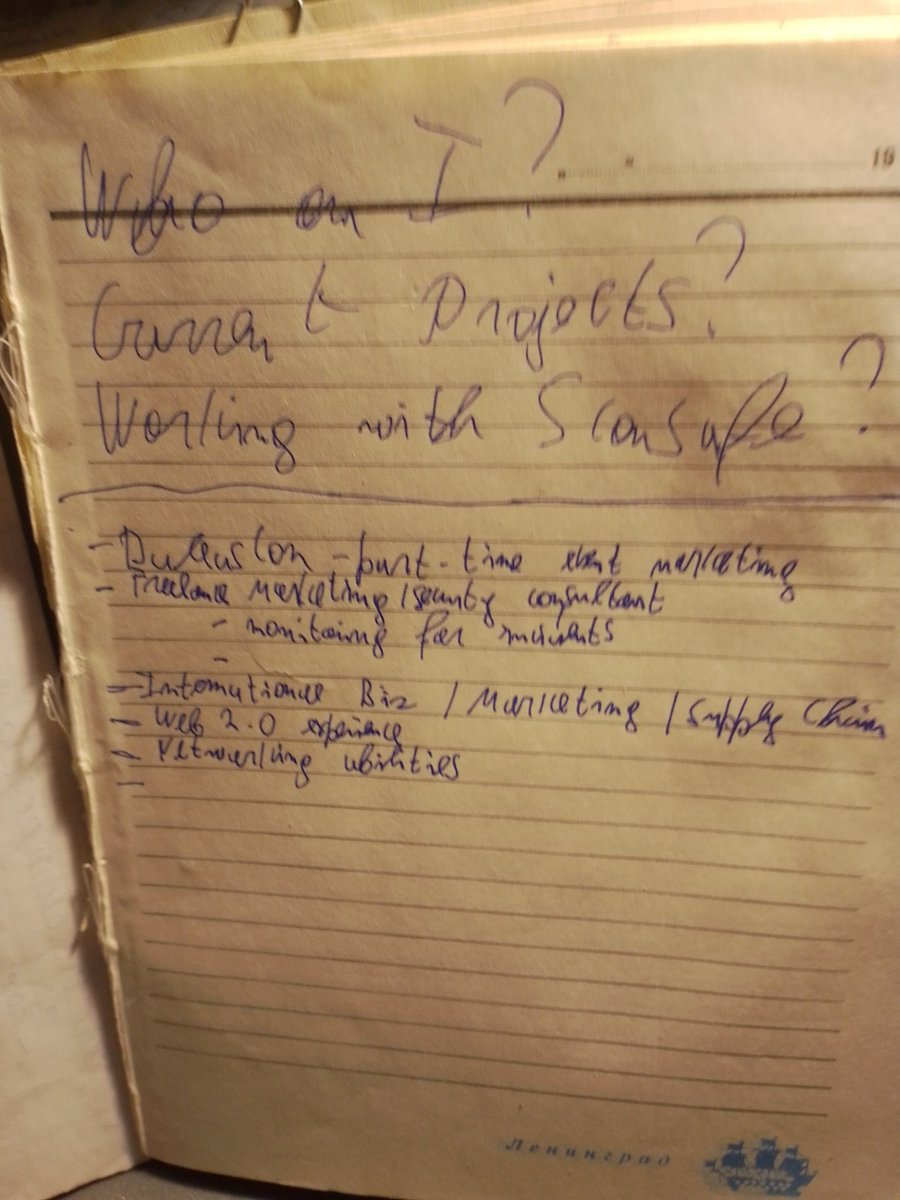 „ “ 19
Who am I?
Current Projects?
Working with Sconsafe?
- part-time event marketing
- Freelance Marketing/security consultant
- monitoring for incidents
-
- International Biz / Marketing / Supply Chain
- Web 2.0 experience
- Networking abilities
-
Ленинград